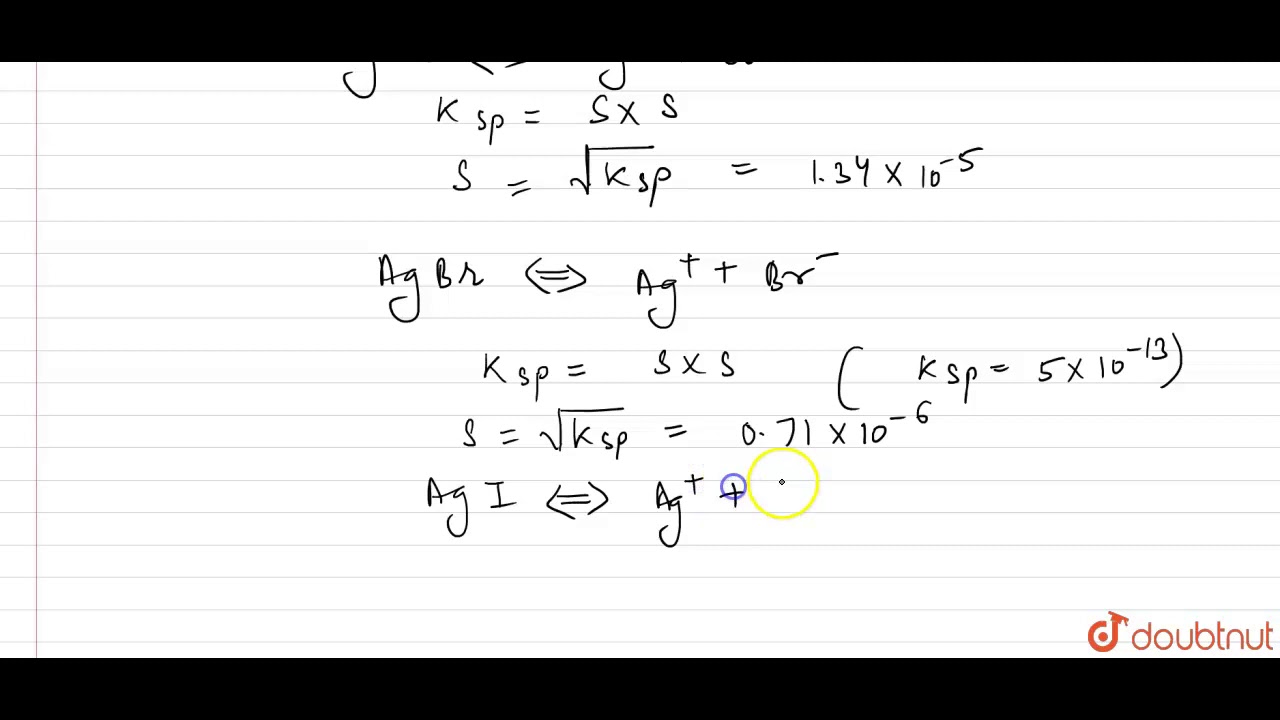 K sp = S X S
S = √Ksp = 1.34 × 10⁻⁵
AgBr ⇔ Ag⁺ + Br⁻
Ksp = S X S ( Ksp = 5 × 10⁻¹³)
S = √Ksp = 0.71 × 10⁻⁶
AgI ⇔ Ag⁺ +
doubtnut